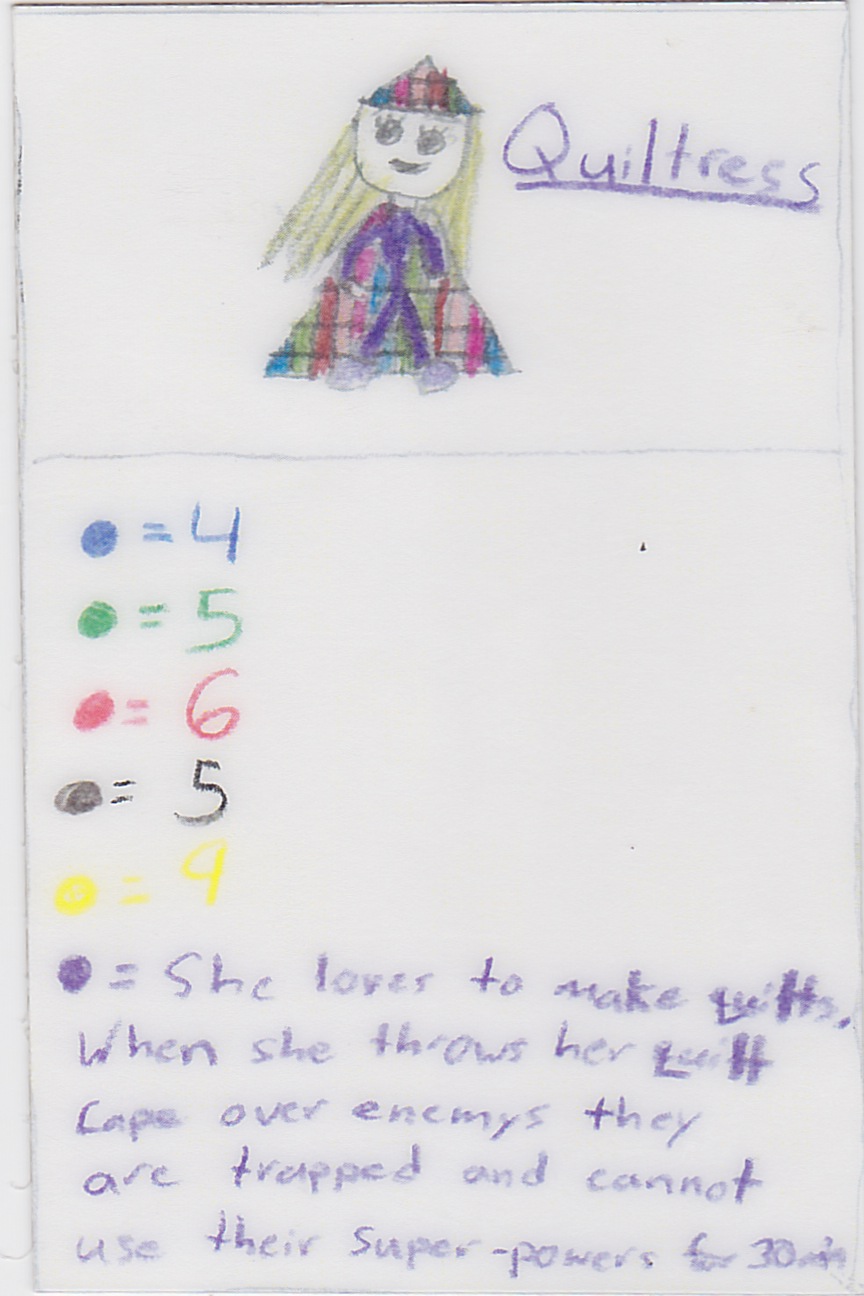 Quiltress
= 4
= 5
= 6
= 5
= 9
= She loves to make quilts.
When she throws her quilt
cape over enemys they
are trapped and cannot
use their super-powers for 30 min